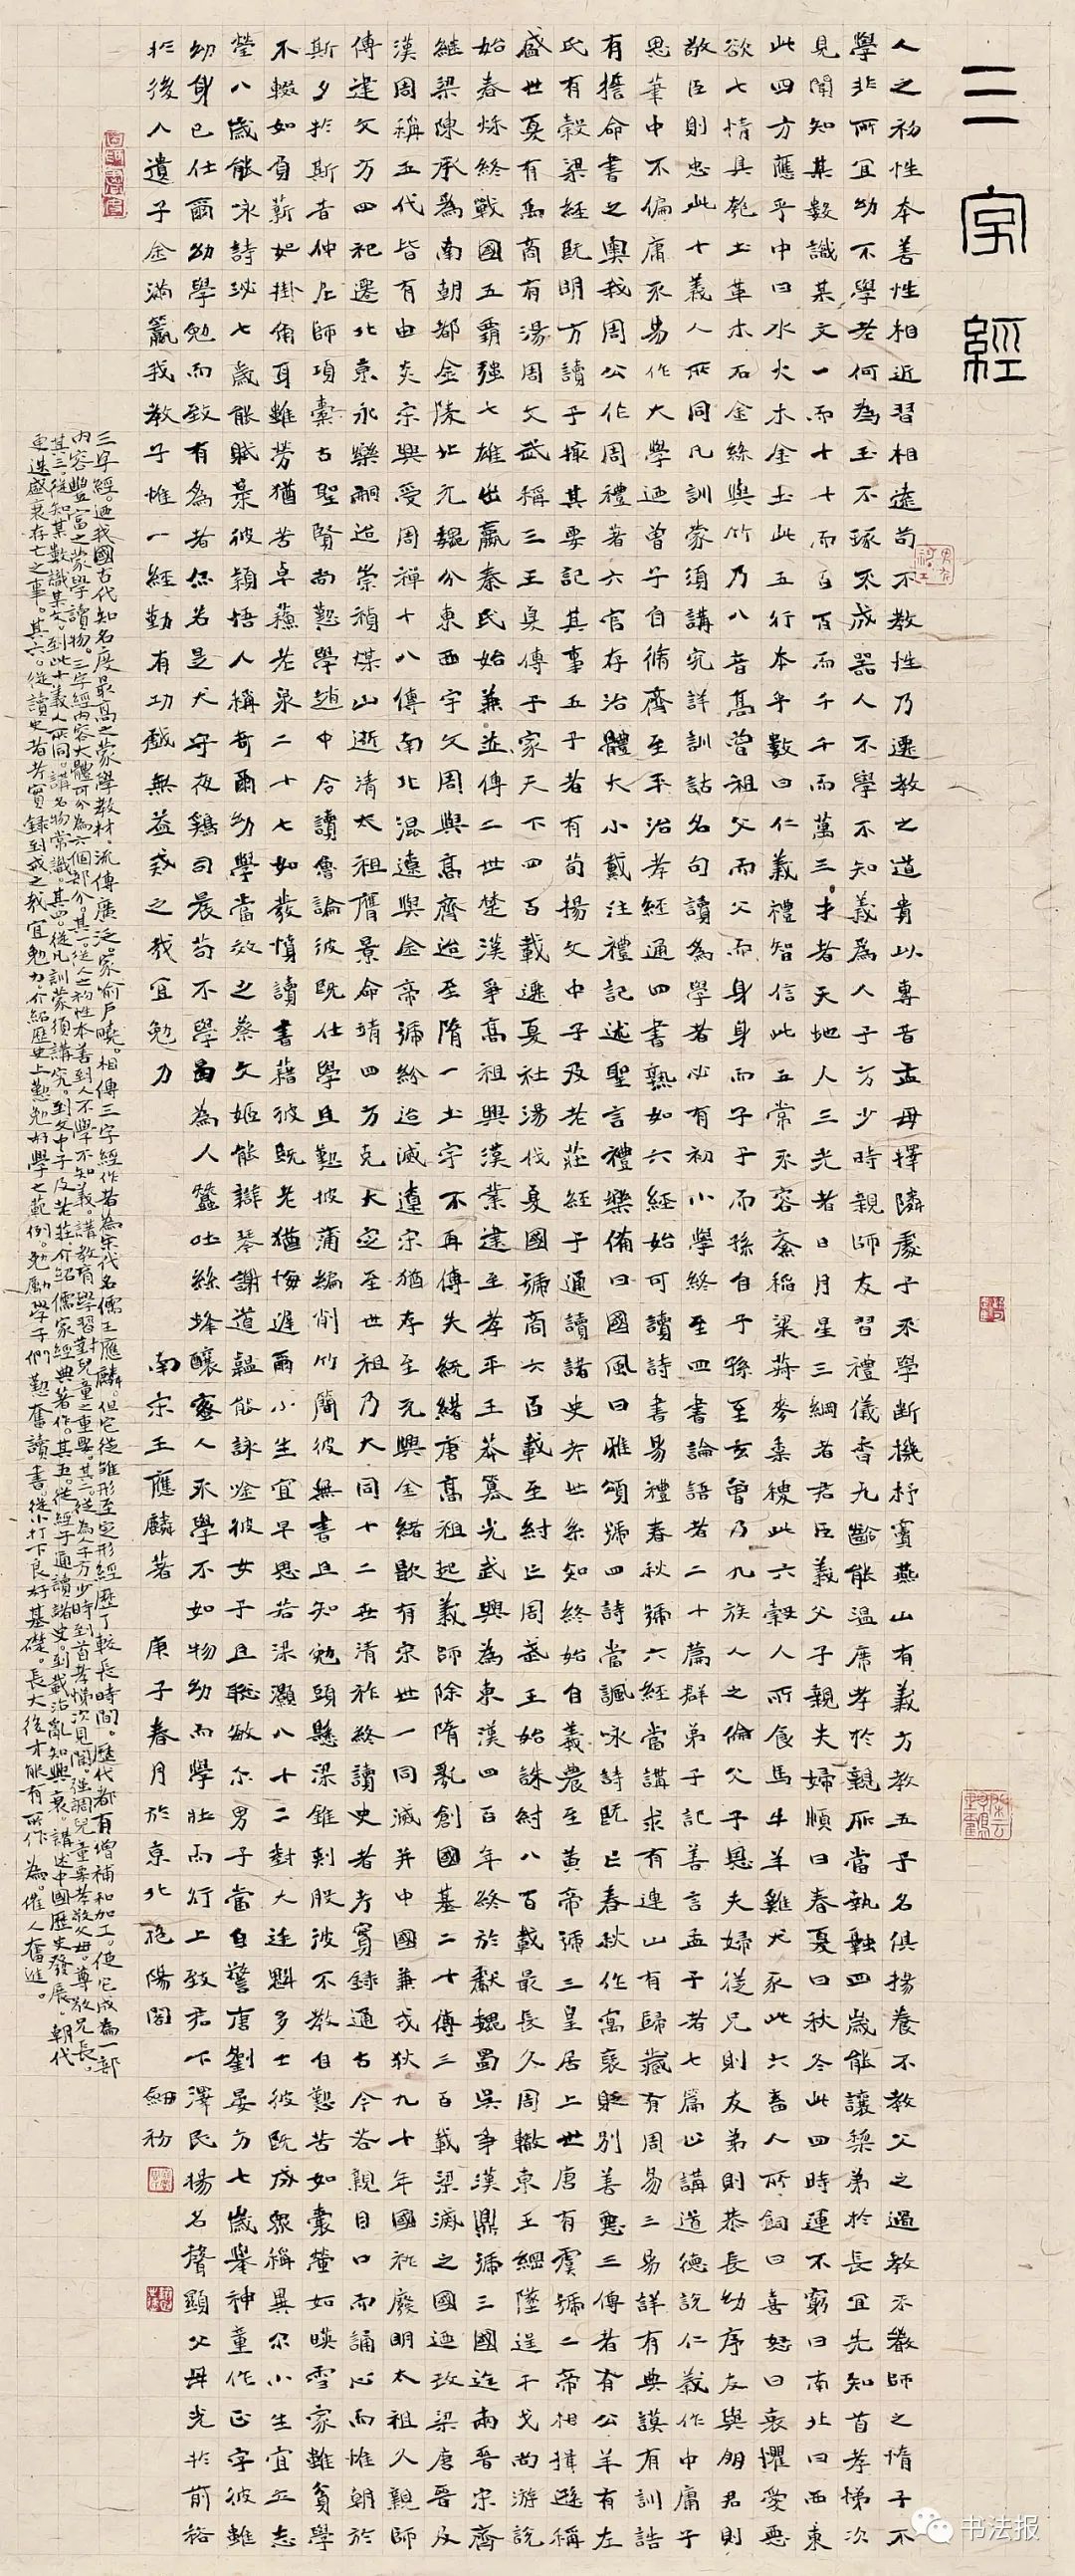 三字經
人之初性本善性相近習相遠苟不教性乃遷教之道貴以專昔孟母擇隣處子不學斷機杼竇燕山有義方教五子名俱揚養不教父之過教不嚴師之惰子不
學非所宜幼不學老何為玉不琢不成器人不學不知義為人子方少時親師友習禮儀香九齡能溫席孝於親所當執融四歲能讓梨弟於長宜先知首孝悌次
見聞知某數識某文一而十十而百百而千千而萬三才者天地人三光者日月星三綱者君臣義父子親夫婦順曰春夏曰秋冬此四時運不窮曰南北曰西東
此四方應乎中曰水火木金土此五行本乎數曰仁義禮智信此五常不容紊稻粱菽麥黍稷此六穀人所食馬牛羊雞犬豕此六畜人所飼曰喜怒曰哀懼愛惡
欲七情具匏土革木石金絲與竹乃八音高曾祖父而身身而子子而孫自子孫至玄曾乃九族人之倫父子恩夫婦從兄則友弟則恭長幼序友與朋君則
敬臣則忠此十義人所同凡訓蒙須講究詳訓詁名句讀為學者必有初小學終至四書論語者二十篇群弟子記善言孟子者七篇止講道德說仁義作中庸子
思筆中不偏庸不易作大學迺曾子自脩齊至平治孝經通四書熟如六經始可讀詩書易禮春秋號六經當講求有連山有歸藏有周易三易詳有典謨有訓誥
有誓命書之奧我周公作周禮著六官存治體大小戴注禮記述聖言禮樂備曰國風曰雅頌號四詩當諷咏詩既亡春秋作寓褒貶別善惡三傳者有公羊有左
氏有穀梁經既明方讀子撮其要記其事五子者有荀揚文中子及老莊經子通讀諸史考世系知終始自羲農至黃帝號三皇居上世唐有虞號二帝相揖遜稱
盛世夏有禹商有湯周文武稱三王夏傳子家天下四百載遷夏社湯伐夏國號商六百載至紂亡周武王始誅紂八百載最長久周轍東王綱墜逞干戈尚游說
始春秋終戰國五霸強七雄出嬴秦氏始兼並傳二世楚漢爭高祖興漢業建至孝平王莽篡光武興為東漢四百年終於獻魏蜀吳爭漢鼎號三國迄兩晉宋齊
繼梁陳承為南朝都金陵北元魏分東西宇文周與高齊迨至隋一土宇不再傳失統緒唐高祖起義師除隋亂創國基二十傳三百載梁滅之國迺改梁唐晉及
漢周稱五代皆有由炎宋興受周禪十八傳南北混遼與金帝號紛迨滅遼宋猶存至元興金緒歇有宋世一同滅并中國兼戎狄九十年國祚廢明太祖人親師
傳建文方四祀遷北京永樂嗣迨崇禎煤山逝清太祖膺景命靖四方克大定至世祖乃大同十二世清祚終讀史者考實錄通古今若親目口而誦心而惟朝於
斯夕於斯昔仲尼師項橐古聖賢尚懃學趙中令讀魯論彼既仕學且懃披蒲編削竹簡彼無書且知勉頭懸梁錐刺股彼不教自懃苦如囊螢如映雪家雖貧學
不輟如負薪如掛角身雖勞猶苦卓蘇老泉二十七如發憤讀書籍彼既老猶悔遲爾小生宜早思若梁灝八十二對大廷魁多士彼既成眾稱異尔小生宜立志
瑩八歲能咏詩泌七歲能賦棊彼穎悟人稱奇爾幼學當效之蔡文姬能辯琴謝道韞能詠唫彼女子且聰敏尔男子當自警唐劉晏方七歲舉神童作正字彼雖
幼身已仕爾幼學勉而致有為者亦若是犬守夜鷄司晨苟不學曷為人蠶吐絲蜂釀蜜人不學不如物幼而學壯而行上致君下澤民揚名聲顯父母光於前裕
於後人遺子金滿籯我教子惟一經勤有功戲無益戒之哉宜勉力 南宋王應麟著 庚子春月於京北陽閣 細初
三字經。迺我國古代知名度最高之蒙學教材。流傳廣泛。家俞戶曉。相傳三字經作者為宋代名儒王應麟。但它從雛形至定形經歷了較長時間。歷代都有增補和加工。使它成為一部
內容豐富之蒙學讀物。三字經內容大體可分為六個部分。其一。從人之初性本善到人不學不知義。講教育學習對兒童之重要。其二。從為人子方少時到首孝悌次見聞。強調兒童要孝敬父母。尊敬兄長。
其三。從知某數識某文。到此十義人所同。講名物常識。其四。從凡訓蒙須講究。到文中子及老莊。介紹儒家經典著作。其五。從經子通讀諸史。到載治亂知興衰。講述中國歷史發展。朝代
更迭盛衰存亡之事。其六。從讀史者考實録到戒之哉宜勉力。介紹歷史上懃勉好學之範例。勉勵學子們懃奮讀書。從小打下良好基礎。長大後才能有所作為。催人奮進。
书法报